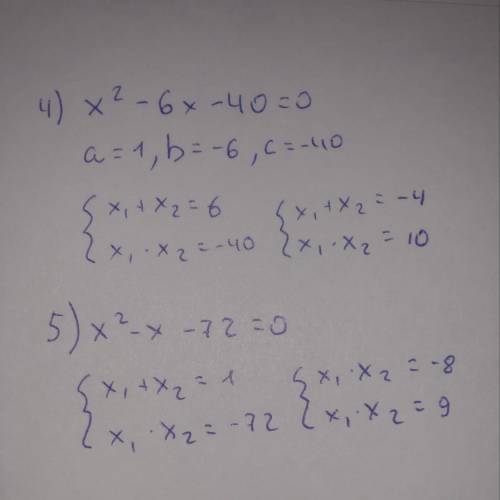 4) x² - 6x - 40 = 0
a = 1, b = -6, c = -40
{ x₁ + x₂ = 6 { x₁ + x₂ = -4
{ x₁ · x₂ = -40 { x₁ · x₂ = 10
5) x² - x - 72 = 0
{ x₁ + x₂ = 1 { x₁ · x₂ = -8
{ x₁ · x₂ = -72 { x₁ · x₂ = 9